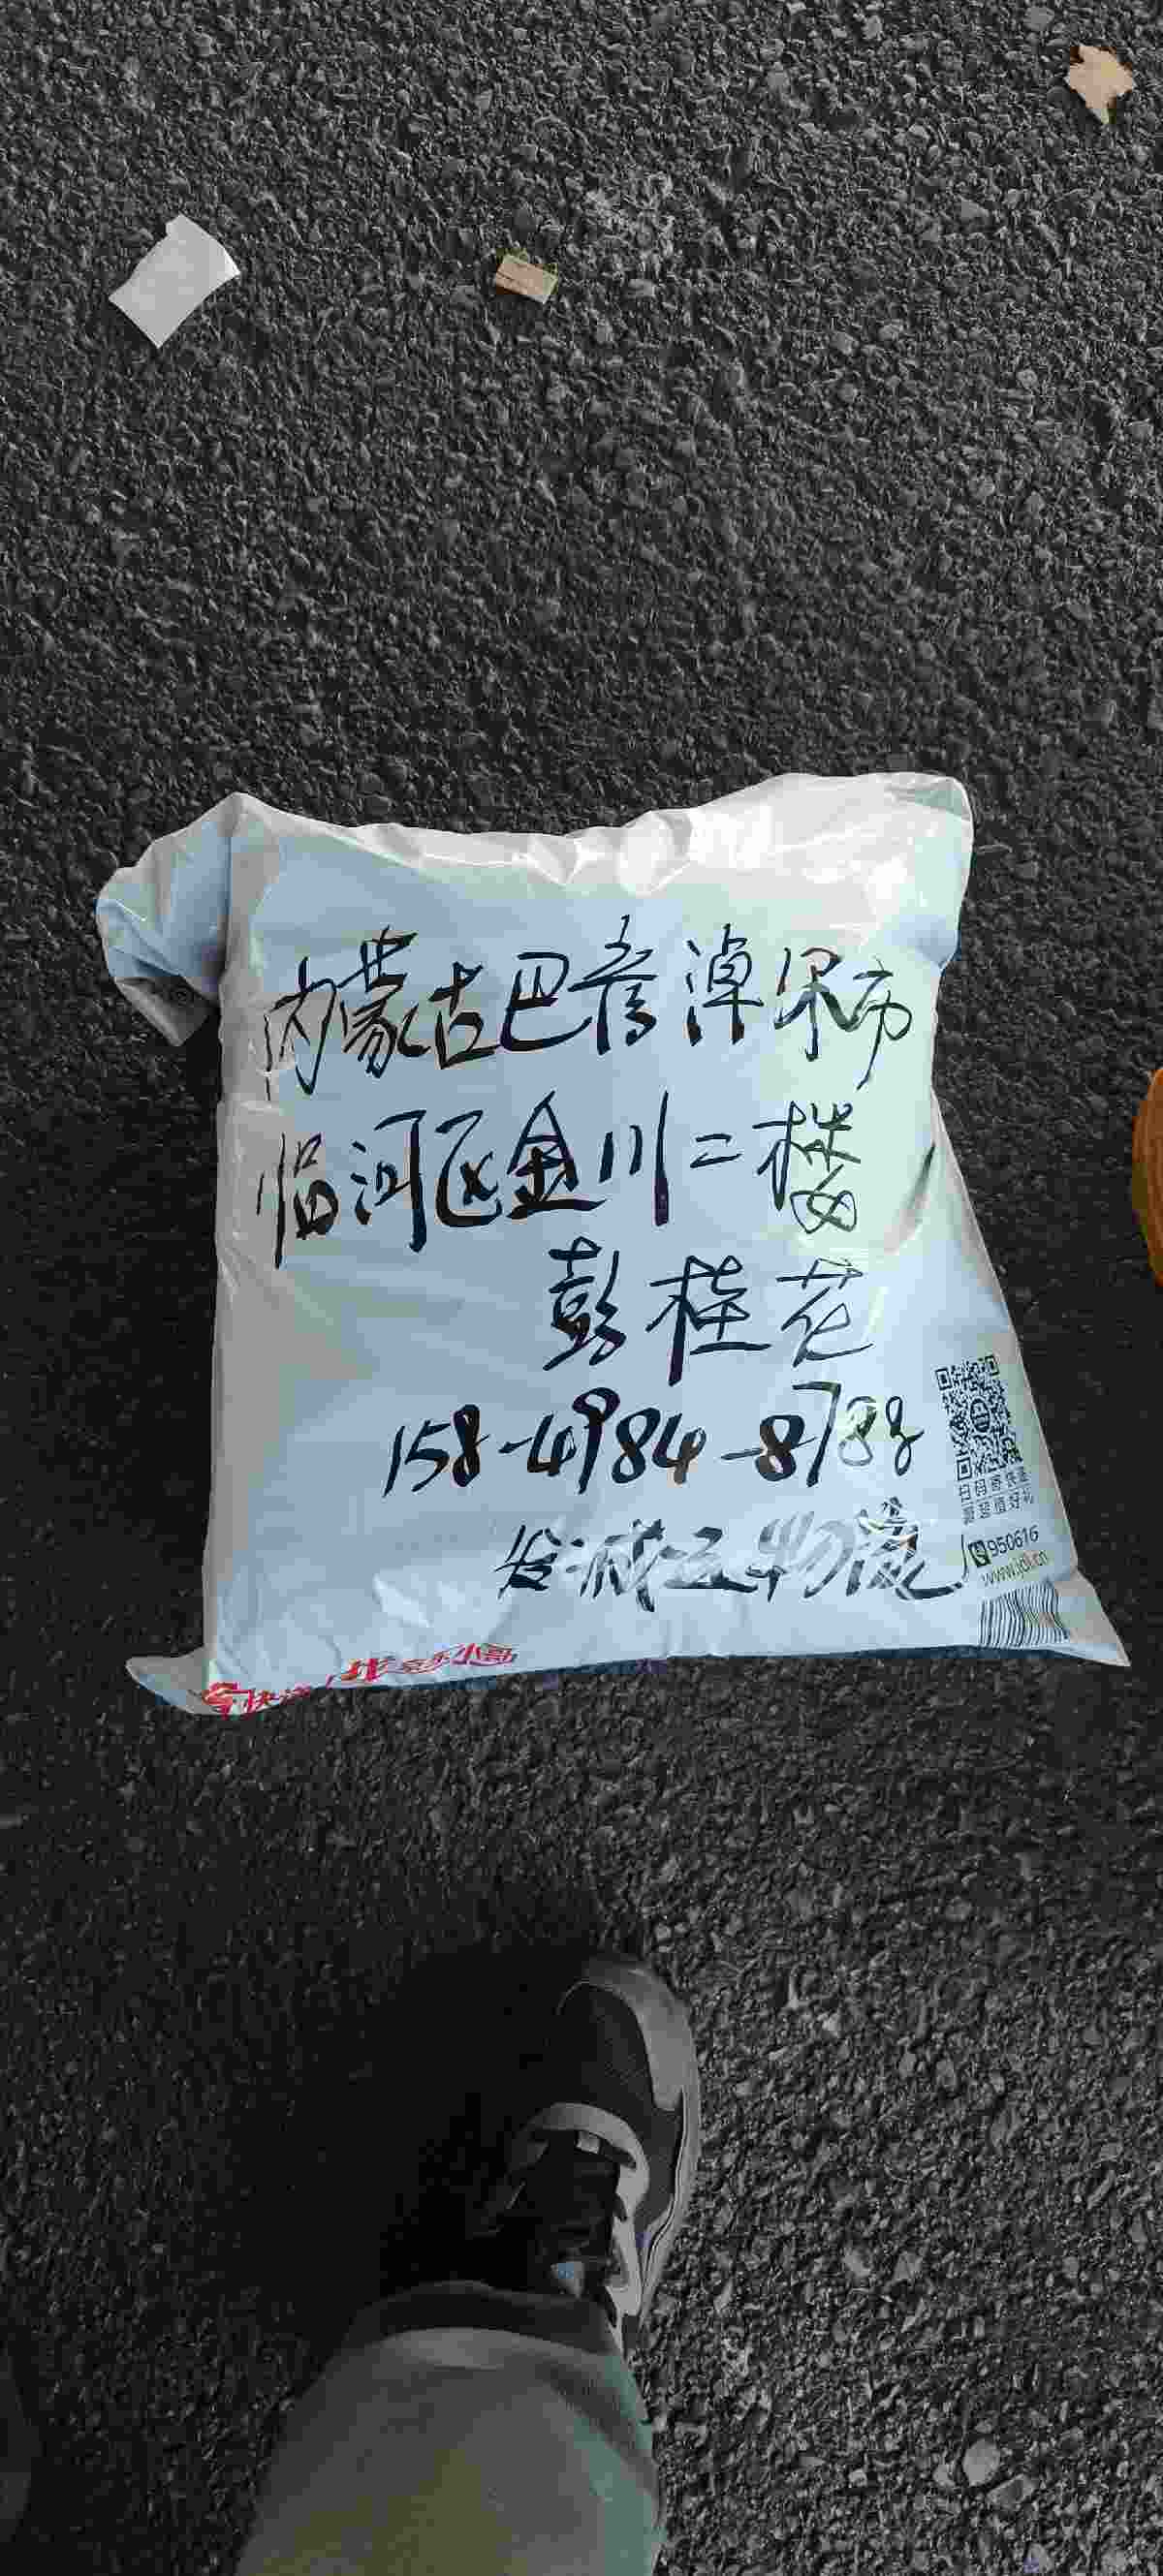 内蒙古巴彦淖尔市
临河区金川二楼
彭桂花
158-4984-8788
发诚立物流
扫码寄快递
950616
www.jdl.cn
京东小哥